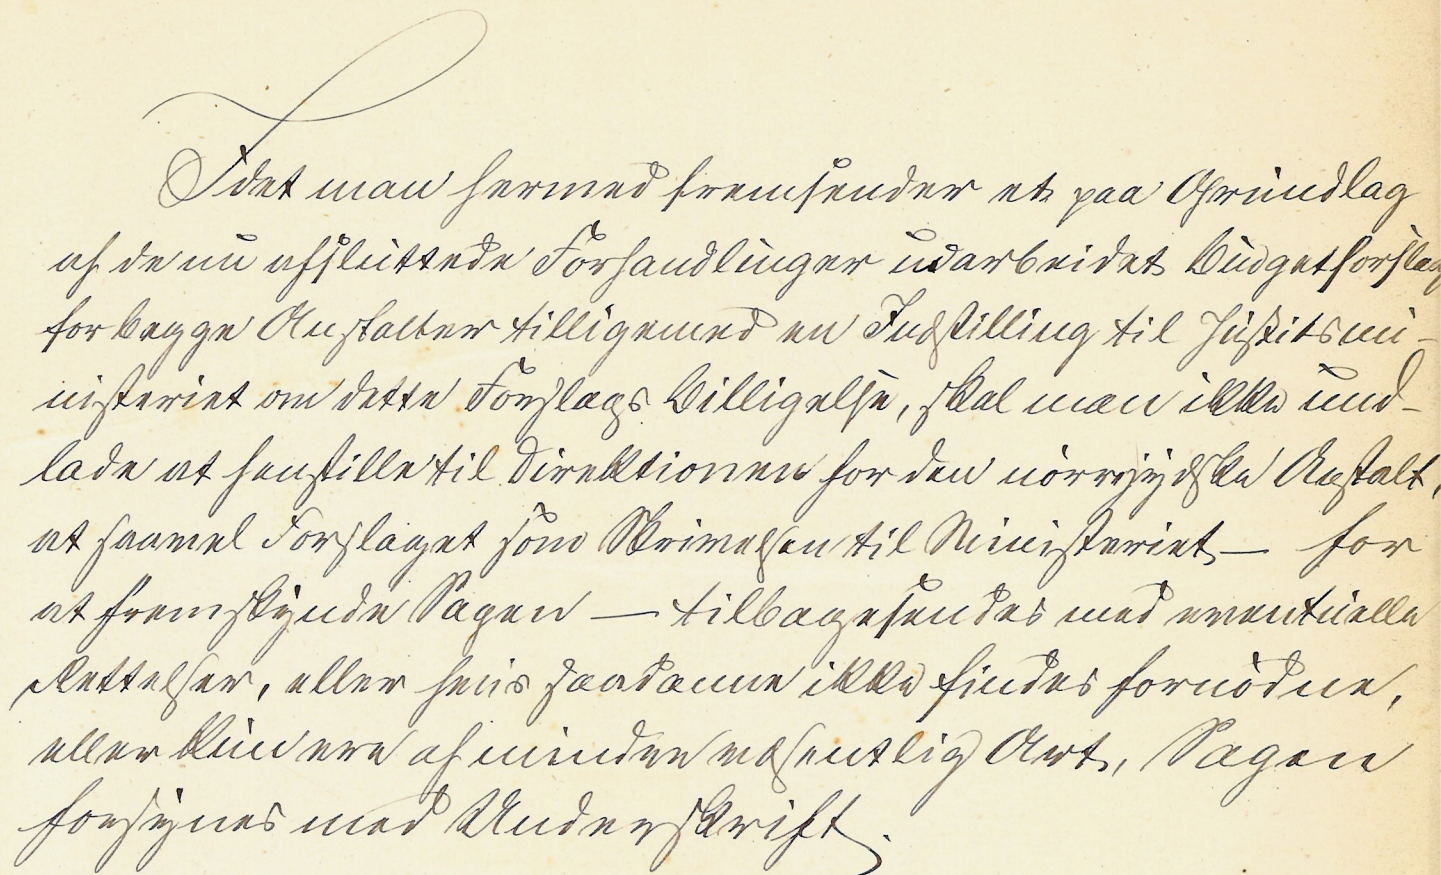 Idet man hermed fremsender et paa Grundlag
af de nu afsluttede Forhandlinger udarbeidet Budgetforslag
for begge Anstalter tilligemed en Indstilling til Justitsmi-
nisteriet om dette Forslags Billigelse, skal man ikke und-
lade at henstille til Direktionen for den nörrejydske Anstalt,
at saavel Forslaget som Skrivelsen til Ministeriet — for
at fremskynde Sagen — tilbagesendes med eventuelle
Rettelser, eller hvis saadanne ikke findes fornödne,
eller kun ere af mindre væsentlig Art, Sagen
forsynes med Underskrift.